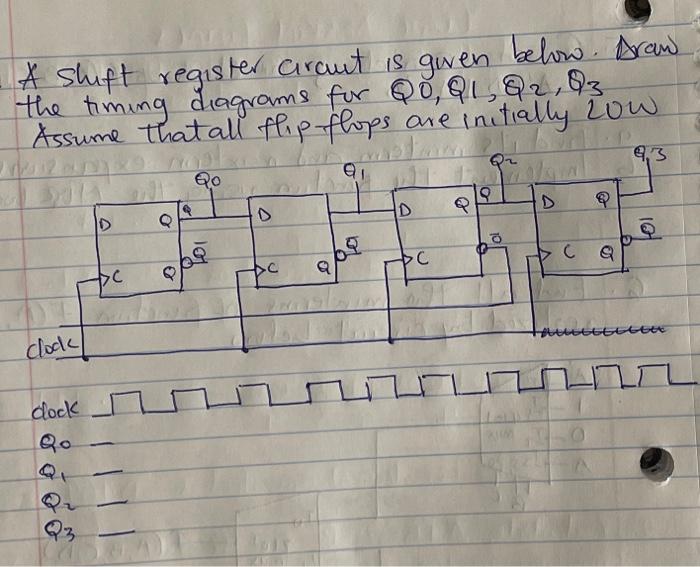 A shift register circuit is given below. Draw
the timing diagrams for Q0, Q1, Q2, Q3
Assume that all flip-flops are initially LOW
Q0 Q1 Q2 Q3
D Q Q D D Q Q D Q
Q̅ Q̅ Q̅ Q̅
C Q C Q C C Q
clock
clock
Q0
Q1
Q2
Q3